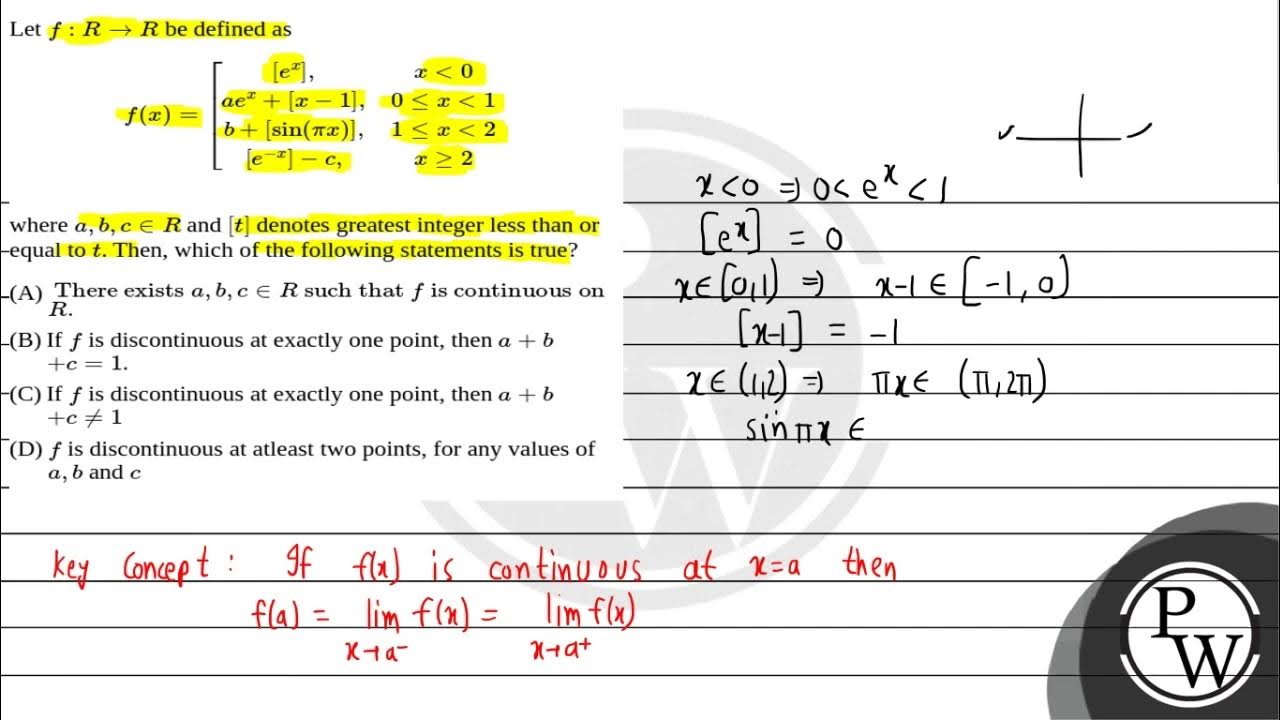 Let f : R → R be defined as
f(x) = [ [eˣ], x < 0
aeˣ + [x − 1], 0 ≤ x < 1
b + [sin(πx)], 1 ≤ x < 2
[e⁻ˣ] − c, x ≥ 2
where a, b, c ∈ R and [t] denotes greatest integer less than or
equal to t. Then, which of the following statements is true?
(A) There exists a, b, c ∈ R such that f is continuous on
R.
(B) If f is discontinuous at exactly one point, then a + b
+c = 1.
(C) If f is discontinuous at exactly one point, then a + b
+c ≠ 1
(D) f is discontinuous at atleast two points, for any values of
a, b and c
x < 0 ⇒ 0 < eˣ < 1
[eˣ] = 0
x ∈ [0,1) ⇒ x-1 ∈ [-1, 0)
[x-1] = -1
x ∈ (1,2) ⇒ πx ∈ (π, 2π)
sin πx ∈
Key Concept : If f(x) is continuous at x=a then
f(a) = lim f(x) = lim f(x)
x→a⁻ x→a⁺
P
W